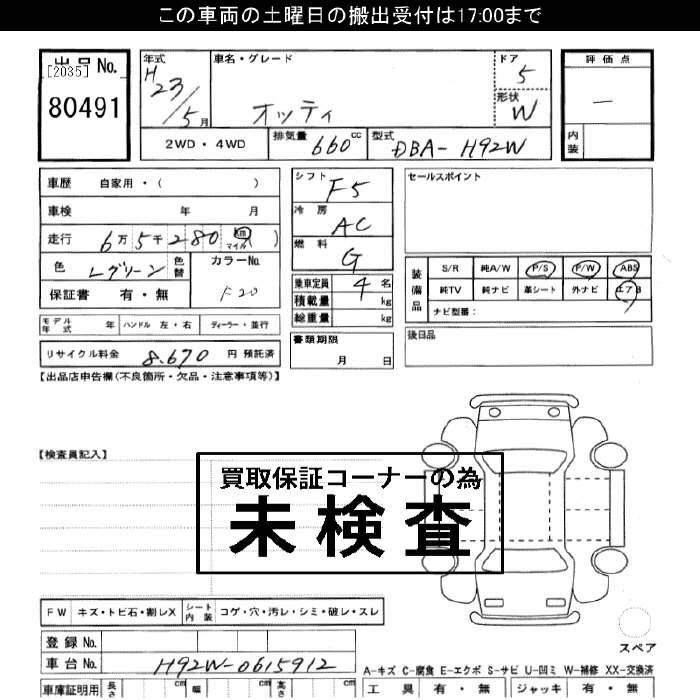 この車両の土曜日の搬出受付は17:00まで
出品No.
[2035]
80491
年式
H23/5月
車名・グレード
オッティ
ドア
5
形状
W
評価点
ー
内装
2WD・4WD
排気量 660cc
型式 DBA-H92W
車歴 自家用・( )
車検 年 月
走行 6万5千280 km マイル( )
色 Lグリーン 色替
カラーNo.
F20
保証書 有・無
シフト F5
冷房 AC
燃料 G
乗車定員 4名
積載量 kg
総重量 kg
セールスポイント
装備品
S/R 純A/W P/S P/W ABS
純TV 純ナビ 革シート 外ナビ エアB
ナビ型番:
モデル年式 年 ハンドル 左・右 ディーラー・並行
リサイクル料金 8.670 円 預託済
書類期限
月 日
後日品
【出品店申告欄(不良箇所・欠品・注意事項等)】
【検査員記入】
買取保証コーナーの為
未検査
FW キズ・トビ石・割レX シート内装 コゲ・穴・汚レ・シミ・破レ・スレ
スペア
登録No.
車台No. H92W-0615912
A-キズ C-腐食 E-エクボ S-サビ U-凹ミ W-補修 XX-交換済
車庫証明用 長さ cm 幅 cm 高さ cm
工具 有・無 ジャッキ 有・無